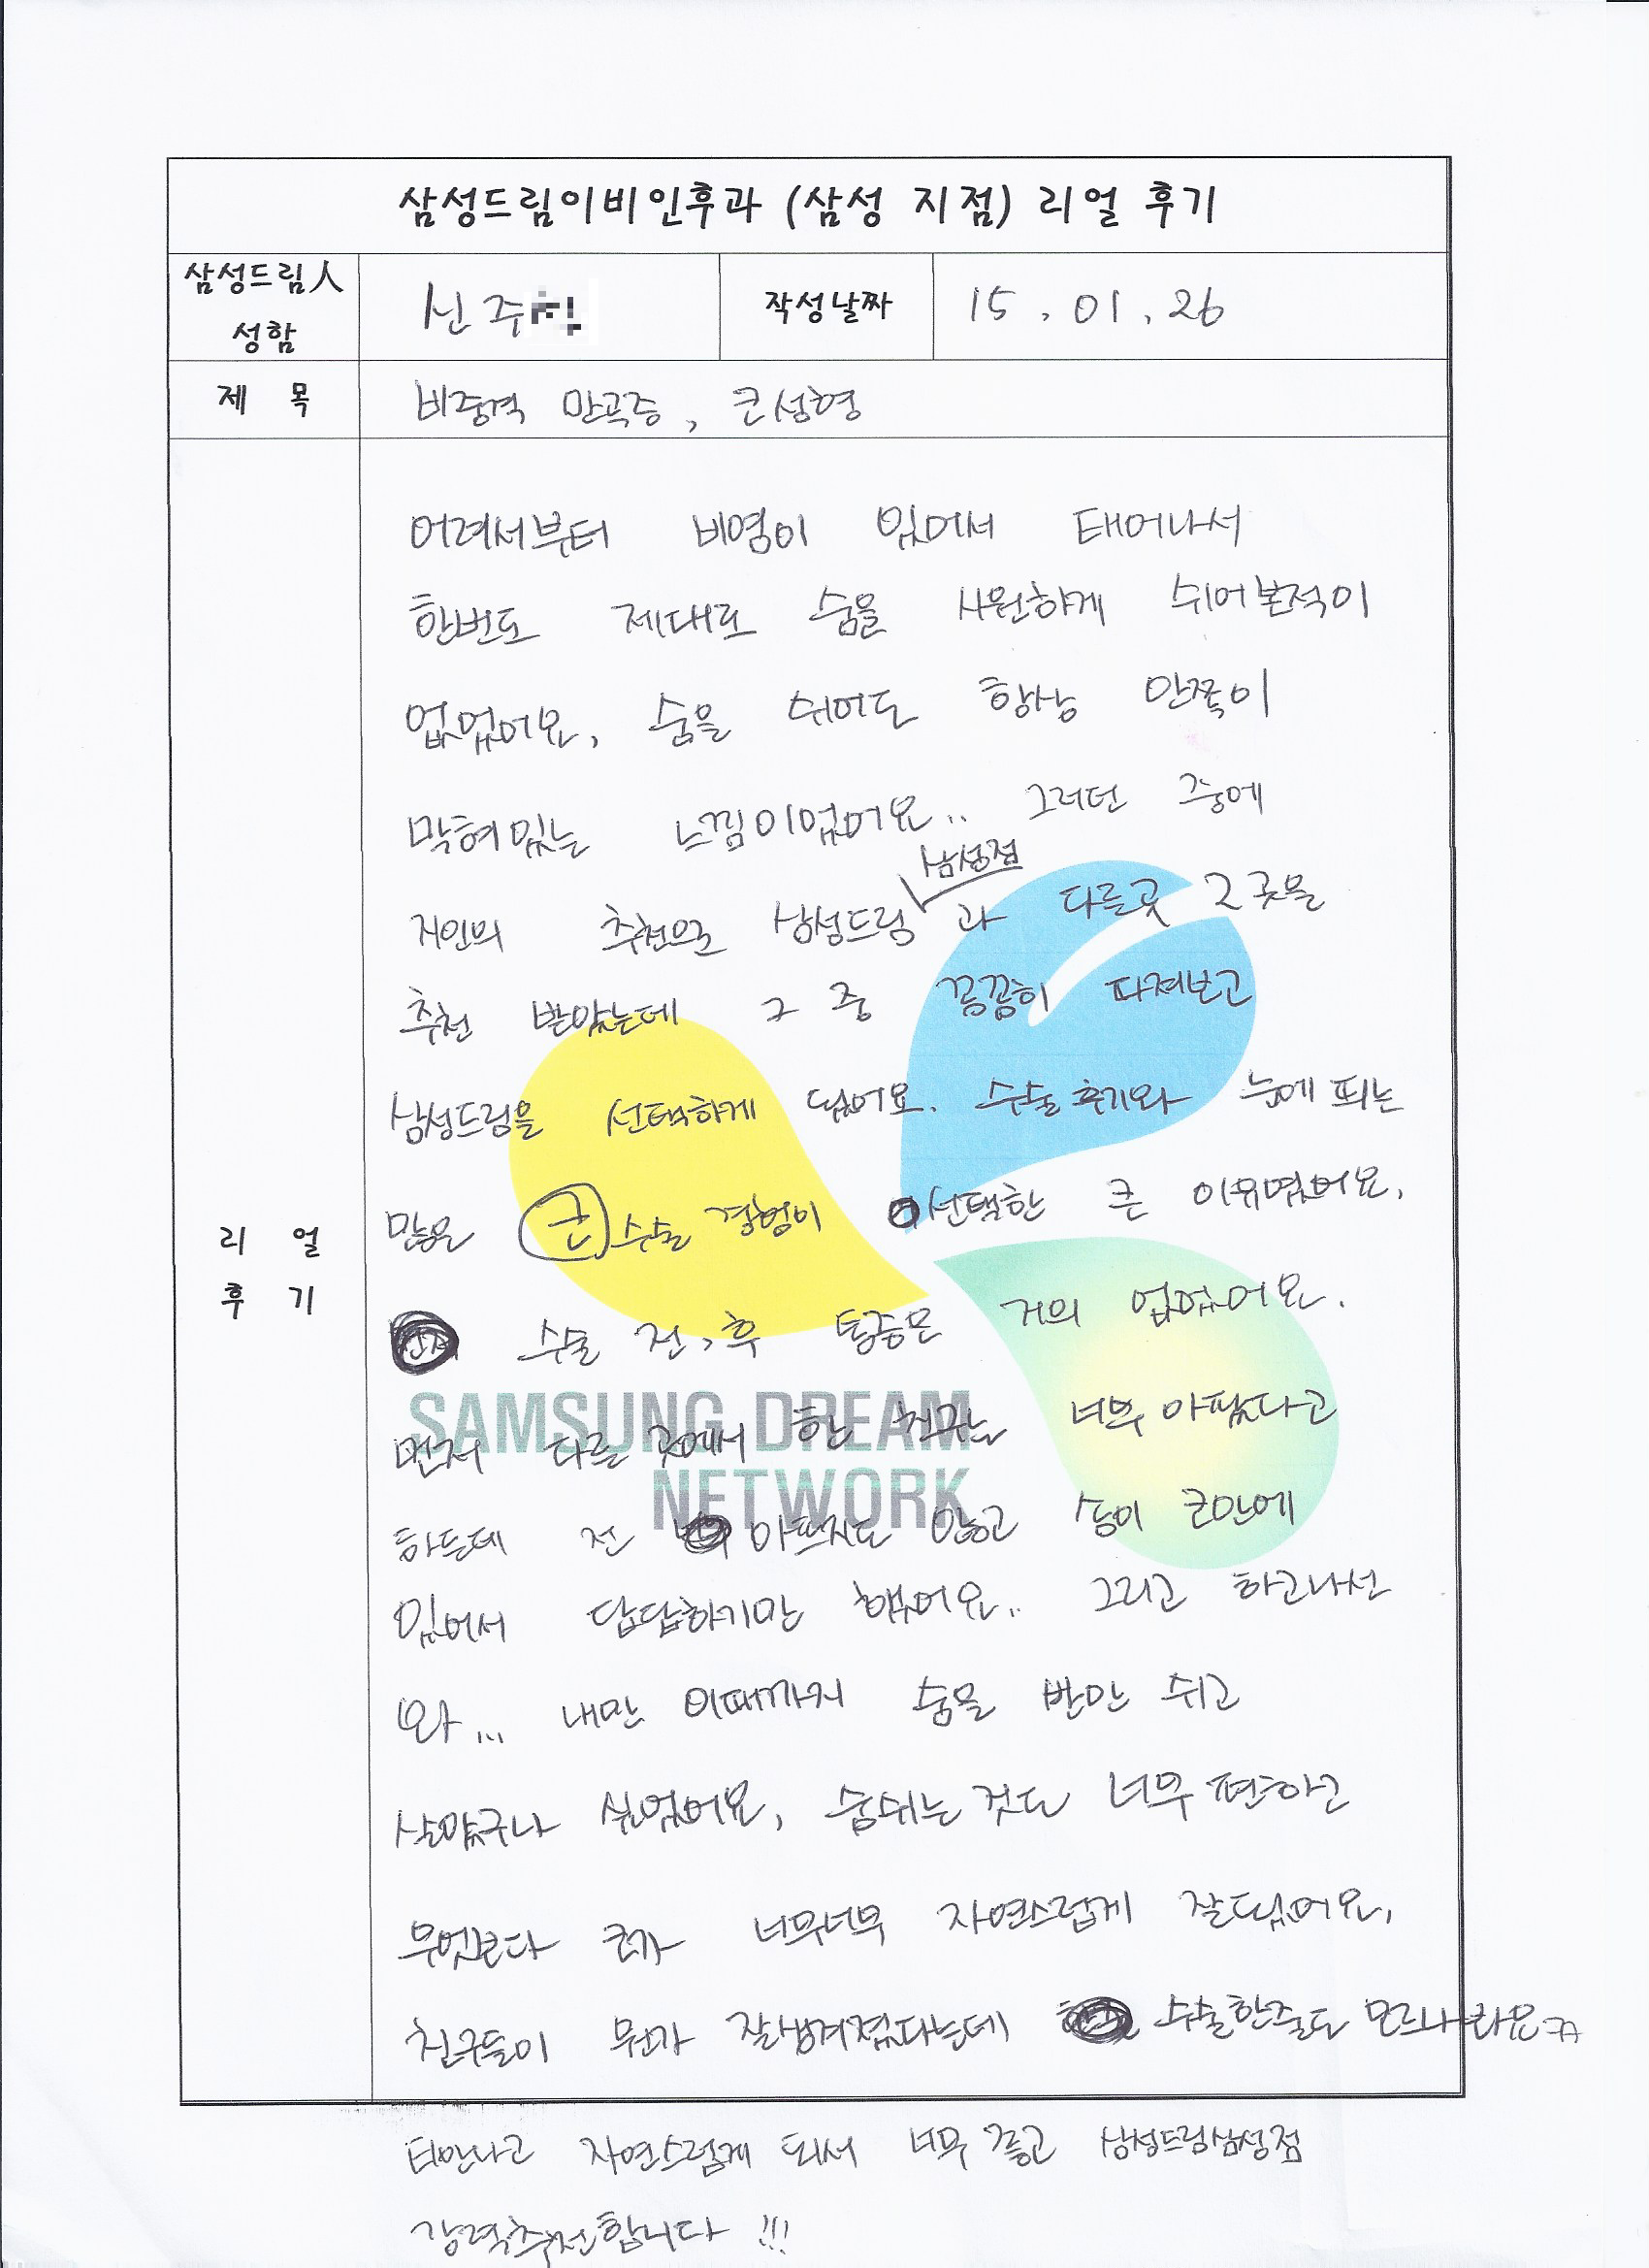 삼성드림이비인후과 (삼성 지점) 리얼 후기
삼성드림人 성함
신주
작성날짜
15. 01. 26
제 목
비중격 만곡증, 코성형
리 얼
후 기
어려서부터 비염이 있어서 태어나서
한번도 제대로 숨을 시원하게 쉬어본적이
없었어요, 숨을 쉬어도 항상 안쪽이
막혀있는 느낌이었어요.. 그러던 중에
삼성점
지인의 추천으로 삼성드림과 다른곳 2곳을
추천 받았는데 그 중 꼼꼼히 따져보고
삼성드림을 선택하게 됐어요. 수술후기와 눈에 띄는
많은 코 수술 경험이 선택한 큰 이유였어요.
수술 전,후 통증은 거의 없었어요.
먼저 다른 곳에서 한 친구는 너무 아팠다고
하든데 전 아프지도 않고 솜이 코안에
있어서 답답하기만 했어요.. 그리고 하고나선
와... 내만 이때까지 숨을 반만 쉬고
살았구나 싶었어요, 숨쉬는 것도 너무 편하고
무엇보다 코가 너무너무 자연스럽게 잘됐어요,
친구들이 뭔가 잘생겨졌다는데 수술한줄도 모르나라요ㅋㅋ
SAMSUNG DREAM
NETWORK
티안나고 자연스럽게 되서 너무 좋고 삼성드림삼성점
강력추천합니다 !!!